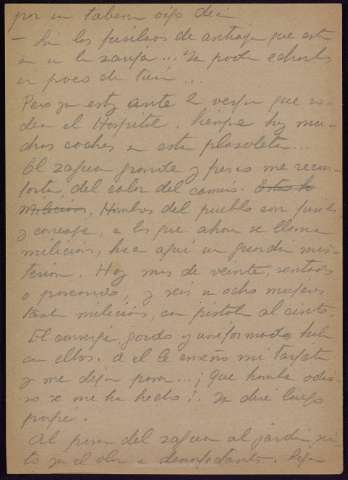 por un
— Son los fusiles de que est
en en la zanja... Ya podía echarles
un poco de tierra...
Pero ya estoy ante la verja que ro-
dea el Hospital. Siempre hay mu-
chos coches en esta plazoleta...
El zaguán grande y fresco me recon-
forta, del calor del camino.
milicianos, Hombres del pueblo con fusil
y correaje, a los que ahora se llama
milicianos, hacen aquí un
Hoy mas de veinte, sentados
o paseando, y seis u ocho mujeres
también milicianas, con pistola al cinto.
El conserje, gordo y uniformado, habla
con ellos. A el le enseño mi tarjeta
y me dejan pasar...; ¡Que hombre odio-
so se me ha hecho! Ya diré luego
porqué.
Al pasar del zaguán al jardín, sien-
to ya el olor a desinfectante. Dejan